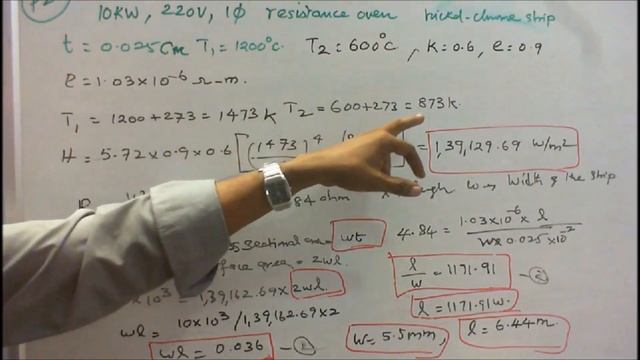 10KW, 220V, 1φ resistance oven nickel-chrome strip
t = 0.025cm T₁ = 1200°C. T₂ = 600°C, K = 0.6, e = 0.9
ρ = 1.03×10⁻⁶ Ω-m.
T₁ = 1200+273 = 1473k T₂ = 600+273 = 873k.
H = 5.72×0.9×0.6 [(1473)⁴ = 1,39,129.69 W/m²
84 ohm w → Width of the strip
Sectional area = wt 4.84 = 1.03×10⁻⁶ × l / w×0.025×10⁻²
face area = 2wl. l/w = 1171.91 —②
×10³ = 1,39,162.69 × 2wl. l = 1171.91w.
wl = 10×10³/1,39,162.69×2 w = 5.5mm, l = 6.44m.
wl = 0.036 —①